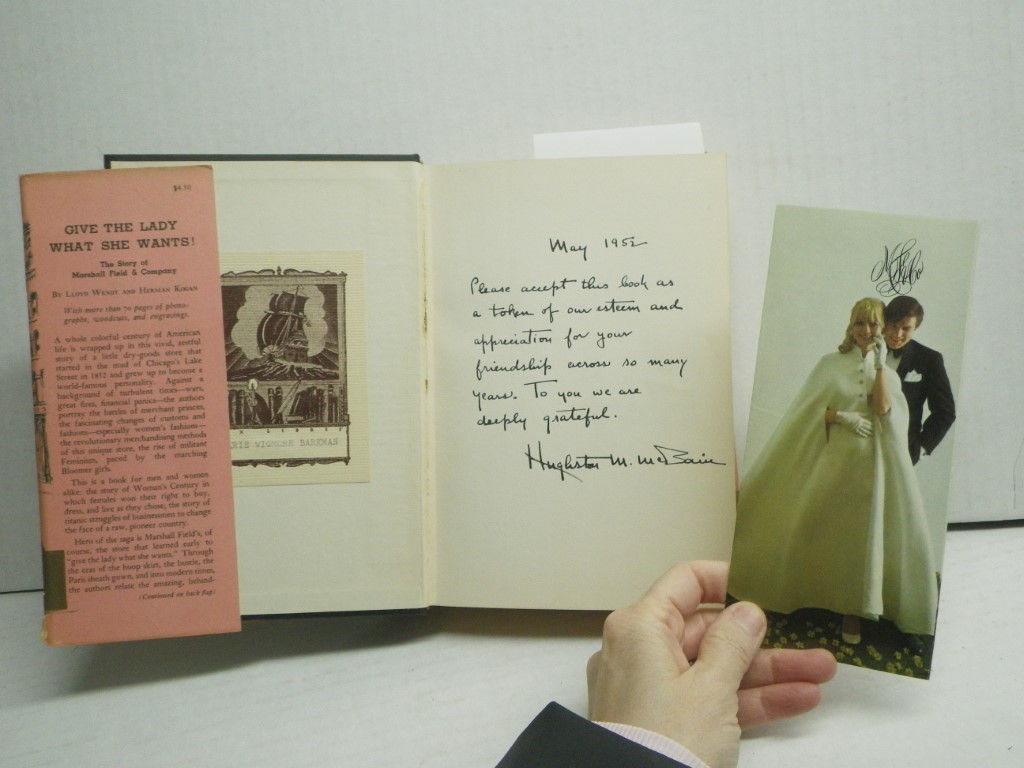 $4.50
GIVE THE LADY
WHAT SHE WANTS!
The Story of
Marshall Field & Company
BY LLOYD WENDT AND HERMAN KOGAN
With more than 70 pages of photo-
graphs, woodcuts, and engravings.
A whole colorful century of American
life is wrapped up in this vivid, zestful
story of a little dry-goods store that
started in the mud of Chicago's Lake
Street in 1852 and grew up to become a
world-famous personality. Against a
background of turbulent times—wars,
great fires, financial panics—the authors
portray the battles of merchant princes,
the fascinating changes of customs and
fashions—especially women's fashions—
the revolutionary merchandising methods
of this unique store, the rise of militant
Feminism, paced by the marching
Bloomer girls.
This is a book for men and women
alike: the story of Woman's Century in
which females won their right to buy,
dress, and live as they chose, the story of
titanic struggles of businessmen to change
the face of a raw, pioneer country.
Hero of the saga is Marshall Field's, of
course, the store that learned early to
"give the lady what she wants." Through
the eras of the hoop skirt, the bustle, the
Paris sheath gown, and into modern times,
the authors relate the amazing, behind-
(Continued on back flap)
WIGMORE BARKMAN
May 1952
Please accept this book as
a token of our esteem and
appreciation for your
friendship across so many
years. To you we are
deeply grateful.
Hughston M. McBain